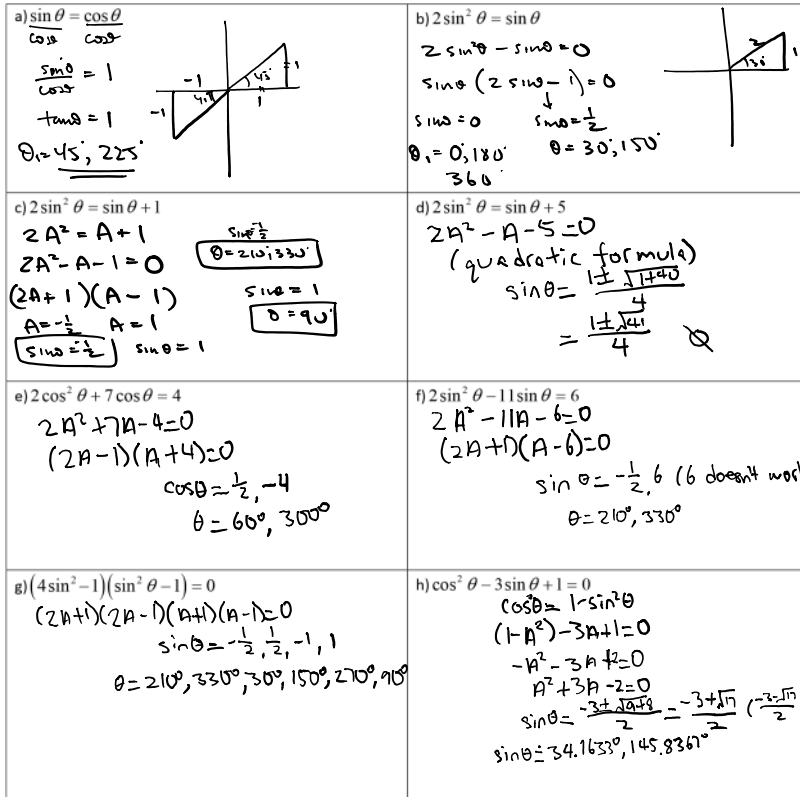 a) sin θ = cos θ
cosθ cosθ
sinθ/cosθ = 1
tanθ = 1
θ₁ = 45°, 225°
-1
-1
45°
45°
1
1
b) 2 sin² θ = sin θ
2 sin²θ - sinθ = 0
sinθ (2 sinθ - 1) = 0
sinθ = 0 sinθ = 1/2
θ₁ = 0°, 180° θ = 30°, 150°
360°
2
1
30°
c) 2 sin² θ = sin θ + 1
2A² = A + 1
2A² - A - 1 = 0
(2A + 1)(A - 1)
A = -1/2 A = 1
sinθ = -1/2 sin θ = 1
sinθ = -1/2
θ = 210°, 330°
sinθ = 1
θ = 90°
d) 2 sin² θ = sin θ + 5
2A² - A - 5 = 0
(quadratic formula)
sin θ = (1 ± √1+40)/4
= (1 ± √41)/4 Ø
e) 2 cos² θ + 7 cos θ = 4
2A² + 7A - 4 = 0
(2A - 1)(A + 4) = 0
cosθ = 1/2, -4
θ = 60°, 300°
f) 2 sin² θ - 11 sin θ = 6
2A² - 11A - 6 = 0
(2A + 1)(A - 6) = 0
sin θ = -1/2, 6 (6 doesn't wor
θ = 210°, 330°
g) (4 sin² - 1)(sin² θ - 1) = 0
(2A+1)(2A-1)(A+1)(A-1) = 0
sinθ = -1/2, 1/2, -1, 1
θ = 210°, 330°, 30°, 150°, 270°, 90°
h) cos² θ - 3 sin θ + 1 = 0
cos²θ = 1 - sin²θ
(1 - A²) - 3A + 1 = 0
-A² - 3A + 2 = 0
A² + 3A - 2 = 0
sinθ = (-3 ± √9+8)/2 = (-3 + √17)/2 ((-3 - √17)/2
sinθ = 34.1633°, 145.8367°